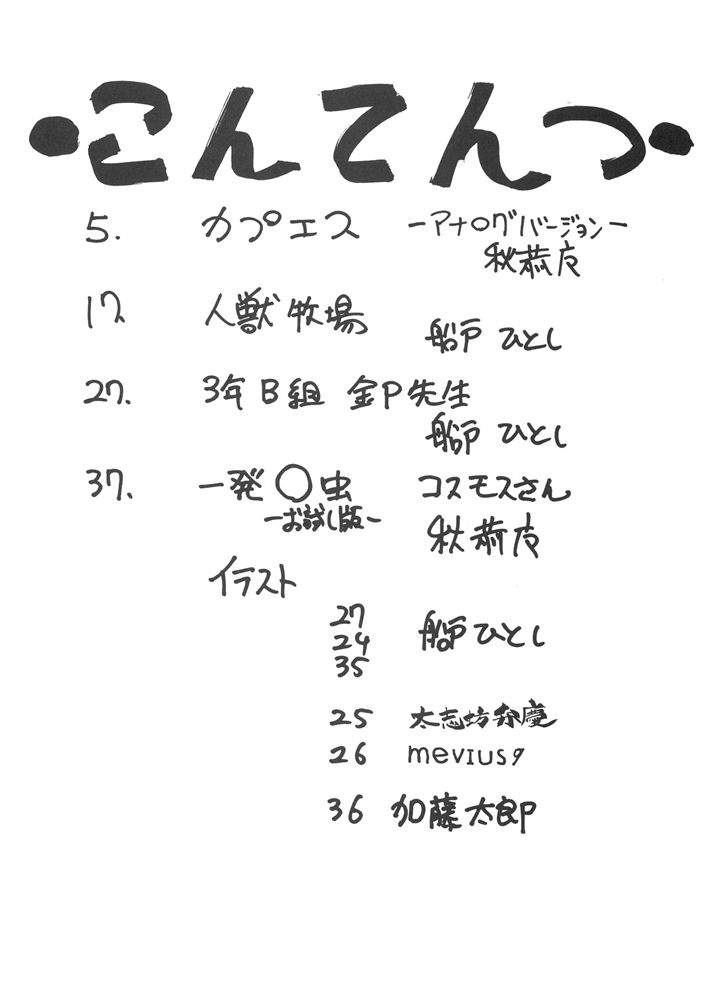 ・こんてんつ・
5. カプエス ーアナログバージョンー
秋恭摩
17. 人獣牧場
船戸ひとし
27. 3年B組 金P先生
船戸ひとし
37. 一発〇虫 コスモスさん
ーお試し版ー
秋恭摩
イラスト
27
24 船戸ひとし
35
25 太志坊弁慶
26 mevius9
36 加藤太郎